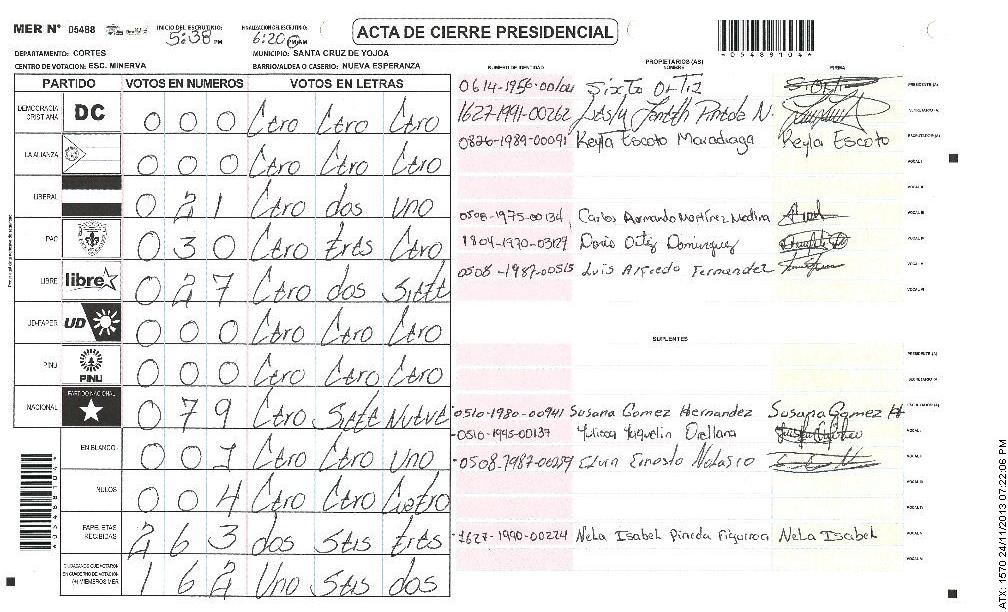 MER Nº 05488 INICIO DEL ESCRUTINIO: 5:38 PM FINALIZACION DEL ESCRUTINIO: 6:20 PM ACTA DE CIERRE PRESIDENCIAL
*05488104*
DEPARTAMENTO: CORTES MUNICIPIO: SANTA CRUZ DE YOJOA
CENTRO DE VOTACION: ESC. MINERVA BARRIO/ALDEA O CASERIO: NUEVA ESPERANZA
PARTIDO VOTOS EN NUMEROS VOTOS EN LETRAS
DEMOCRACIA CRISTIANA DC 0 0 0 Cero Cero Cero
LA ALIANZA 0 0 0 Cero Cero Cero
LIBERAL 0 2 1 Cero dos uno
PAC 0 3 0 Cero tres Cero
LIBRE libre 0 2 7 Cero dos Siete
UD-FAPER UD 0 0 0 Cero Cero Cero
PINU PINU 0 0 0 Cero Cero Cero
NACIONAL PARTIDO NACIONAL 0 7 9 Cero Siete Nueve
EN BLANCO 0 0 1 Cero Cero uno
NULOS 0 0 4 Cero Cero Cuatro
PAPELETAS RECIBIDAS 2 6 3 dos seis tres
CIUDADANOS QUE VOTARON EN CUADERNO DE VOTACION (+) MIEMBROS MER 1 6 2 Uno seis dos
PROPIETARIOS (AS)
NUMERO DE IDENTIDAD NOMBRE FIRMA
Sixto Ortiz S. Orti PRESIDENTE (A)
1627-1991-00262 SECRETARIO (A)
0826-1989-00091 Keyla Escoto Maradiaga Keyla Escoto ESCRUTADOR (A)
VOCAL I
VOCAL II
0508-1975-00134 Carlos Armando Martínez Medina VOCAL III
1804-1970-03129 Doris Ortiz Dominguez VOCAL IV
0508-1987-00515 Luis Alfredo Fernandez VOCAL V
VOCAL VI
SUPLENTES
PRESIDENTE (A)
SECRETARIO (A)
0510-1980-00941 Susana Gomez Hernandez Susana Gomez H ESCRUTADOR (A)
0510-1995-00137 Yulissa Yaquelin Orellana VOCAL I
0508-1987-00289 Edwin Ernesto Nolasco VOCAL II
VOCAL III
VOCAL IV
1627-1990-00224 Nela Isabel Pineda Figueroa Nela Isabel VOCAL V
VOCAL VI
ATX: 1570 24/11/2013 07:22:06 PM